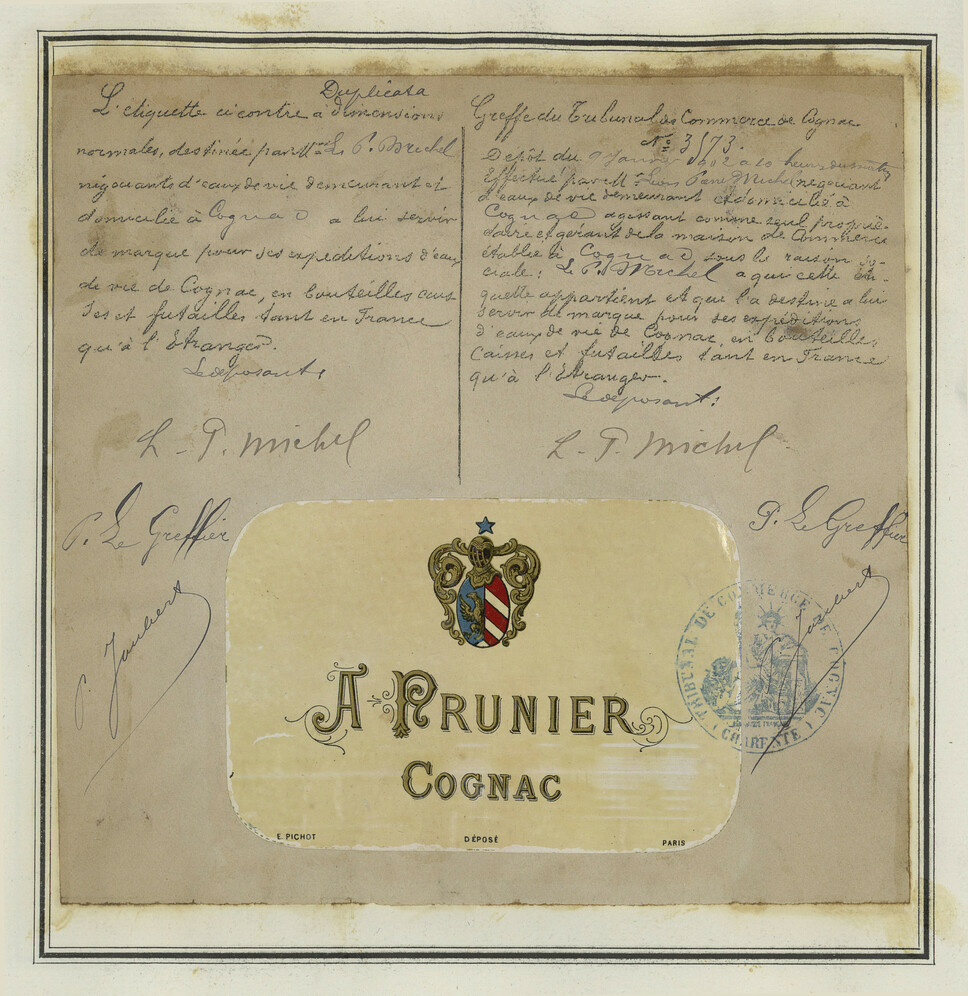 Duplicata
L'etiquette ci contre à dimensions
normales, destinée par Mr L. P. Michel
négociants d'eaux de vie demeurant et
domicilié à Cognac a lui servir
de marque pour ses expeditions d'eaux
de vie de Cognac, en bouteilles cais-
ses et futailles tant en France
qu'à l'Etranger.
Le deposant,
L. P. Michel
P. Le Greffier
P. Joubert
Greffe du Tribunal de Commerce de Cognac
No. 3573.
Depôt du 9 Janvier 1902 à 10 heures du matin
Effectué par Mr Léon Pane Michel négociant
d'eaux de vie demeurant et domicilié à
Cognac agissant comme seul proprié-
taire et gérant de la maison de Commerce
établie à Cognac, sous la raison so-
ciale: L. P. Michel a qui cette éti-
quette appartient et que l'a destinée a lui
servir de marque pour ses expéditions
d'eaux de vie de Cognac, en bouteilles,
Caisses et futailles tant en France
qu'à l'Etranger.
Le deposant:
L. P. Michel
P. Le Greffier
P. Joubert
TRIBUNAL DE COMMERCE DE COGNAC
( CHARENTE )
A. PRUNIER
COGNAC
E. PICHOT DÉPOSÉ PARIS